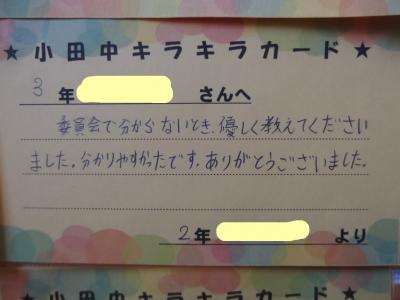 ★小田中キラキラカード★
3年 さんへ
委員会で分からないとき、優しく教えてください
ました。分かりやすかったです。ありがとうございました。
2年 より
★小田中キラキラカード★